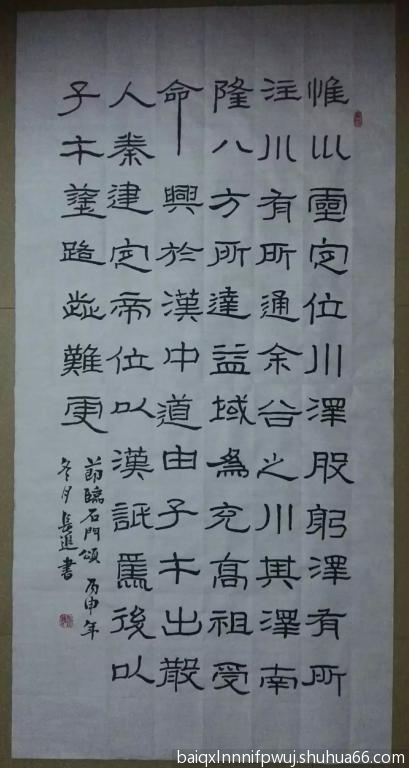 惟巛靈定位川澤股躬澤有所
注川有所通余谷之川其澤南
隆八方所達益域為充高祖受
命興於漢中道由子午出散
入秦建定帝位以漢詆焉後以
子午塗路歮難更
節臨石門頌 丙申年
冬月長進書
baiqxlnnnifpwuj.shuhua66.com